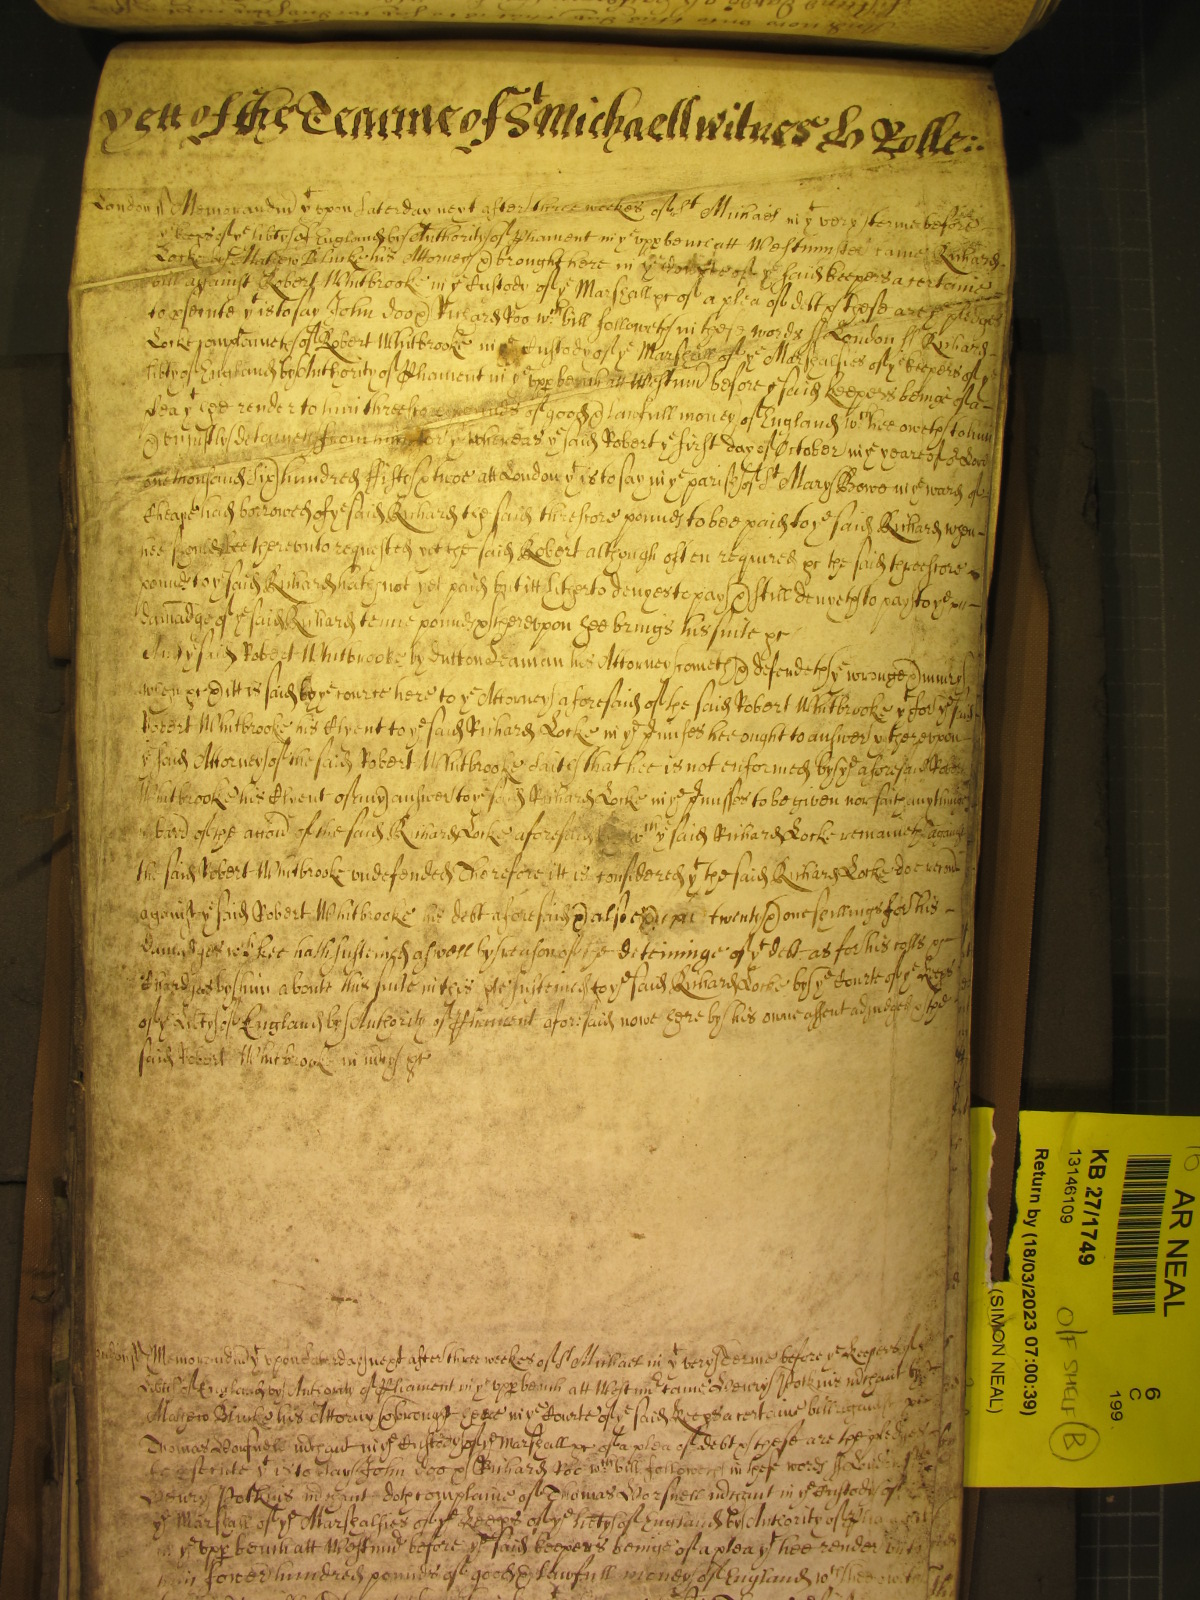 yett of the Tearme of St Michaell witnes H Rolle:.
London ss Memorandm yt upon Saterday next after three weekes of St Michaell in ys very tearme before ye
keeps of ye libty of England by Authority of Parliament in ye upp bench att Westminster came Richard
Locke by Mathew Blucke his Attorney & brought here in ye Courte of ye said keepers a certaine
bill against Robert Whitbrooke in ye Custody of ye Marshall &c of a plea of debt & these are ye pledges
to psecute yt is to say John Doo & Richard Roo wch bill followeth in these words ss London ss Richard
Locke complaineth of Robert Whitbrooke in ye Custody of ye Marshall of ye Marshalsies of ye keepers of ye
libty of England by Authority of Parliament in ye upp bench att Westmr before ye said keepers beinge of a
plea yt hee render to him threescore pounds of good & lawfull money of England wch hee oweth to him
& uniustly deteyneth from him for yt whereas ye said Robert ye first day of October in ye yeare of or Lord
one thousand six hundred fiftie & twoe att London yt is to say in ye parish of St Mary Bowe in ye ward of
Cheape had borrowed of ye said Richard the said threscore pounds to bee paid to ye said Richard when
hee should bee thereunto requested yet the said Robert although often required &c the said threescore
pounds to ye said Richard hath not yet paid but itt hitherto denyes to pay & still denyeth to pay to ye
damadge of ye said Richard tenne pounds & thereupon hee brings his suite &c
And ye said Robert Whitbrooke by Dutton Seaman his Attorney cometh & defendeth ye wronge & iniury
when &c & itt is said by ye courte here to ye Attorney aforesaid of the said Robert Whitbrooke yt for ye said
Robert Whitbrooke his Clyent to ye said Richard Locke in ye pmises hee ought to answer & thereupon
ye said Attorney of the said Robert Whitbrooke saith that hee is not enformed by ye aforesaid Robert
Whitbrooke his Clyent of any answer to ye said Richard Locke in ye pmisses to be given nor saith anything in
barr of the action of the said Richard Locke aforesaid by wch ye said Richard Locke remaineth against
the said Robert Whitbrooke undefended Therefore itt is considered yt the said Richard Locke doe recover
against ye said Robert Whitbrooke his debt aforesaid & alsoe twenty & one shillings for his
damadges wch hee hath susteined aswell by reason of the deteininge of yt debt as for his costs &c
Chardges by him aboute his suite in this susteined to ye said Richard Locke by ye Courte of ye keeps
of ye Libty of England by Authority of Parliament aforesaid nowe here by his owne assent adiudged & the
said Robert Whitbrooke in mercy &c
London ss Memorandm yt upon Saterday next after three weekes of St Michael in ys very Terme before ye keepers of ye
libtie of England by Authority of Parliament in ye upp bench att Westmr came Henry Potkins mrchant by
Mathew Blucke his Attorny & brought here in ye Courte of ye said keeps a certaine bill against
Thomas Worsnell mrchant in ye Custody of ye Marshall &c of a plea of debt & these are the pledges
to psecute yt is to say John Doo & Richard Roo wch bill followeth in these words ss London ss
Henry Potkins mrchant doth complaine of Thomas Worsnell mrchant in ye Custody of
ye Marshall of ye Marshalsies of ye keeps of ye libty of England by Authority of Parliament
in ye upp bench att Westmr before ye said keepers beinge of a plea yt hee render unto
him fower hundred pounds of good & lawfull money of England wch hee oweth
AR NEAL
KB 27/1749
13146109
Return by (18/03/2023 07:00:39)
(SIMON NEAL)
6
C
199
O/F SHELF
B